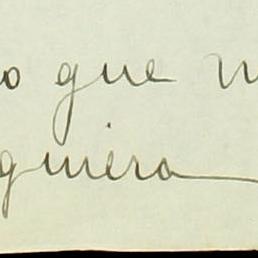 o que n
quiera